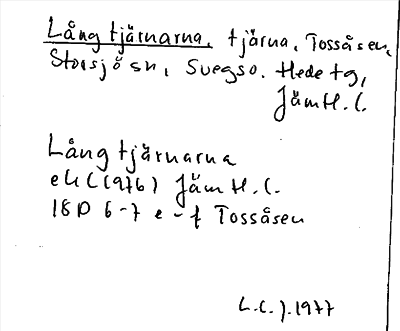 Långtjärnarna, tjärna, Tossåsen,
Storsjö sn, Svegs o. Hede tg,
Jämtl. l.
Långtjärnarna
ek l (1976) Jämtl. l.
18D 6-7 e-f Tossåsen
L.C.J. 1977